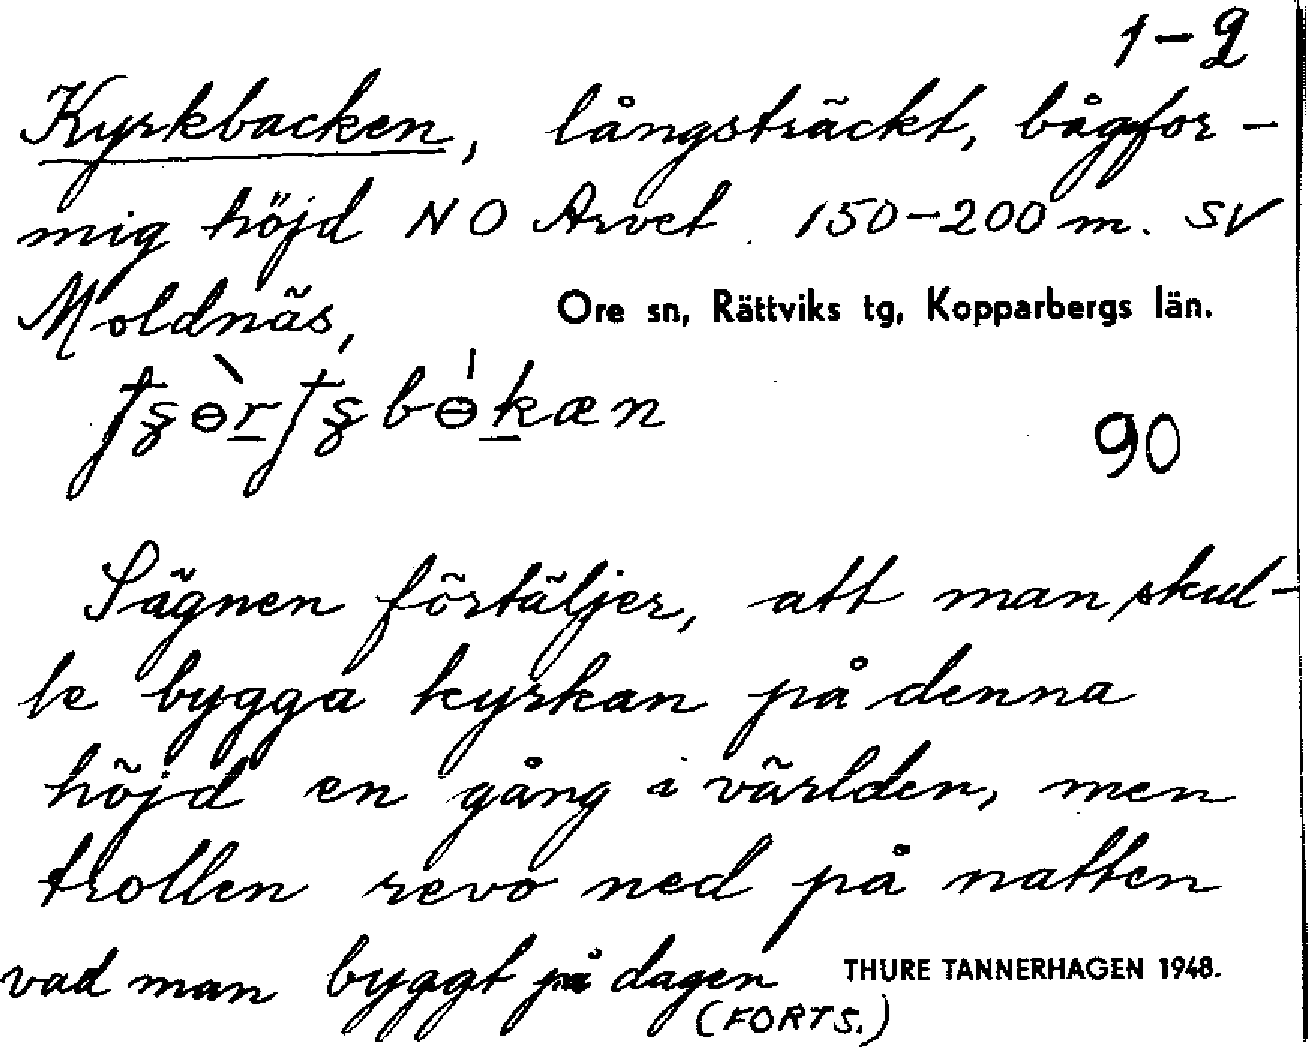 1-2
Kyrkbacken, långsträckt, bågfor-
mig höjd NO Arvet 150-200 m. SV
Moldnäs,
Ore sn, Rättviks tg, Kopparbergs län.
90
Sägnen förtäljer, att man skul-
le bygga kyrkan på denna
höjd en gång i världen, men
trollen revo ned på natten
vad man byggt på dagen
THURE TANNERHAGEN 1948.
(FORTS.)